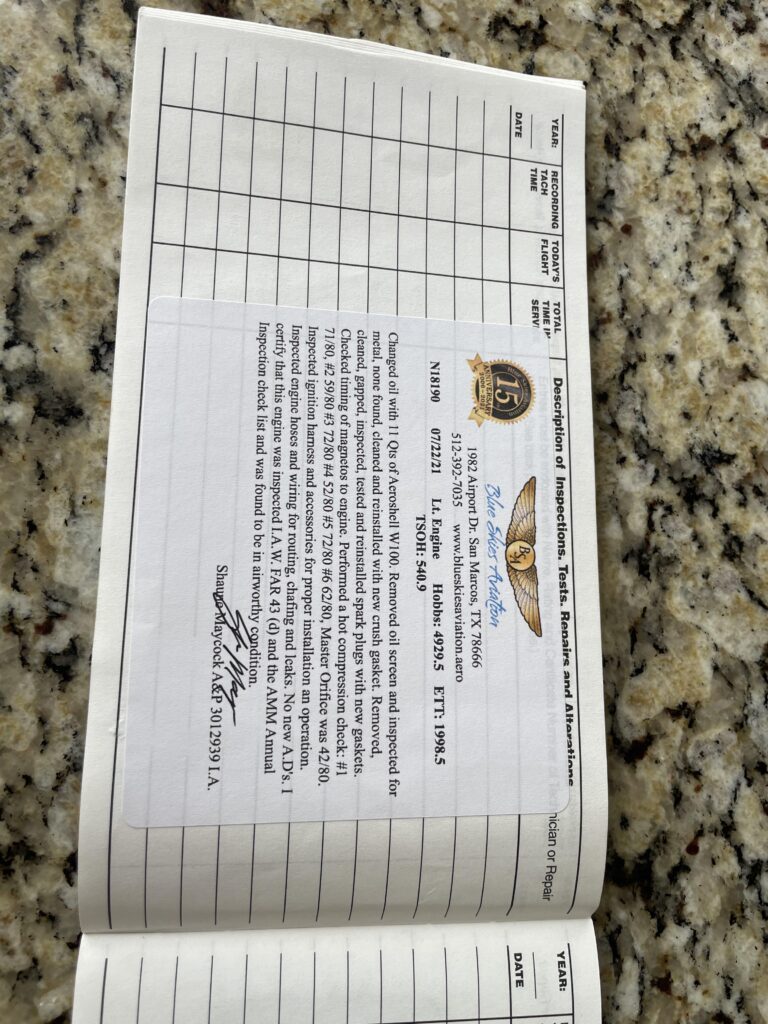 YEAR:
DATE
RECORDING
TACH
TIME
TODAY'S
FLIGHT
TOTAL
TIME IN
SERV
Description of Inspections, Tests, Repairs and Alterations
nician or Repair
15
ANNIVERSARY
BSA
Blue Skies Aviation
1982 Airport Dr. San Marcos, TX 78666
512-392-7035 www.blueskiesaviation.aero
N18190 07/22/21 Lt. Engine Hobbs: 4929.5 ETT: 1998.5
TSOH: 540.9
Changed oil with 11 Qts of Aeroshell W100. Removed oil screen and inspected for
metal, none found, cleaned and reinstalled with new crush gasket. Removed,
cleaned, gapped, inspected, tested and reinstalled spark plugs with new gaskets.
Checked timing of magnetos to engine. Performed a hot compression check: #1
71/80, #2 59/80 #3 72/80 #4 52/80 #5 72/80 #6 62/80, Master Orifice was 42/80.
Inspected ignition harness and accessories for proper installation an operation.
Inspected engine hoses and wiring for routing, chafing and leaks. No new A.D's. I
certify that this engine was inspected I.A.W. FAR 43 (d) and the AMM Annual
Inspection check list and was found to be in airworthy condition.
Maycock A&P 3012939 I.A.
YEAR:
DATE